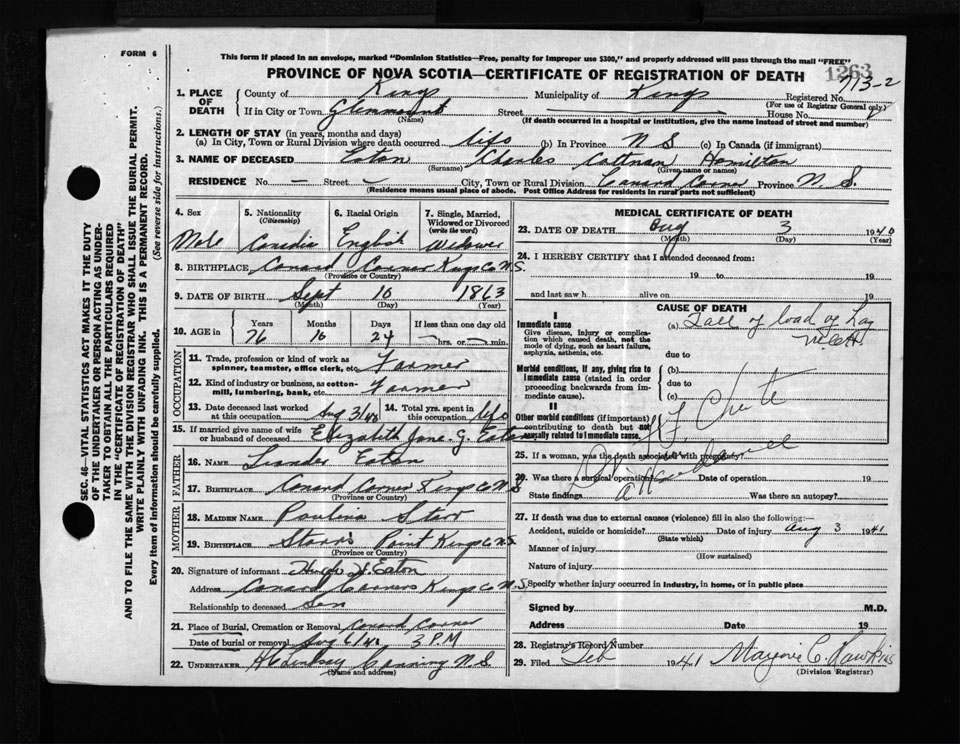 FORM 6
This form if placed in an envelope, marked "Dominion Statistics—Free, penalty for improper use $300," and properly addressed will pass through the mail "FREE"
PROVINCE OF NOVA SCOTIA—CERTIFICATE OF REGISTRATION OF DEATH
1263
713-2
1. PLACE OF DEATH
County of Kings Municipality of Kings Registered No.
(For use of Registrar General only)
If in City or Town Glenmont Street House No.
(Name) (If death occurred in a hospital or institution, give the name instead of street and number)
2. LENGTH OF STAY (in years, months and days)
(a) In City, Town or Rural Division where death occurred life (b) In Province N S (c) In Canada (if immigrant)
3. NAME OF DECEASED Eaton Charles Hamilton
(Surname) (Given name or names)
RESIDENCE No. — Street — City, Town or Rural Division Corner Province N. S.
(Residence means usual place of abode. Post Office Address for residents in rural parts not sufficient)
4. Sex 5. Nationality (Citizenship) 6. Racial Origin 7. Single, Married, Widowed or Divorced (write the word)
Male Canadia English Widower
8. BIRTHPLACE Conard Corner Kings Co N.S.
(Province or Country)
9. DATE OF BIRTH Sept 10 1863
(Month) (Day) (Year)
10. AGE in Years Months Days If less than one day old
76 10 24 hrs. or min.
OCCUPATION
11. Trade, profession or kind of work as spinner, teamster, office clerk, etc. Farmer
12. Kind of industry or business, as cotton-mill, lumbering, bank, etc. Farmer
13. Date deceased last worked at this occupation Aug 3/40 14. Total yrs. spent in this occupation life
15. If married give name of wife or husband of deceased Elizabeth Jane G. Eaton
FATHER
16. Name Leander Eaton
17. Birthplace Conard Corner Kings Co N S
(Province or Country)
MOTHER
18. MAIDEN NAME Paulina Starr
19. BIRTHPLACE Starrs Point Kings Co N.S
(Province or Country)
20. Signature of informant Eaton
Address Conard Corners Kings Co N.S.
Relationship to deceased Son
21. Place of Burial, Cremation or Removal Conard Corner
Date of burial or removal Aug 6/40 3 P.M
22. UNDERTAKER Canning N.S
(Name and address)
MEDICAL CERTIFICATE OF DEATH
23. DATE OF DEATH Aug 3 1940
(Month) (Day) (Year)
24. I HEREBY CERTIFY that I attended deceased from:
19 to 19
and last saw h alive on 19
CAUSE OF DEATH
I
Immediate cause
Give disease, injury or complication which caused death, not the mode of dying, such as heart failure, asphyxia, asthenia, etc.
(a) Fall of load of hay
due to
Morbid conditions, if any, giving rise to immediate cause (stated in order proceeding backwards from immediate cause).
(b)
due to
(c)
II
Other morbid conditions (if important) contributing to death but not causally related to immediate cause.
25. If a woman, was the death associated with pregnancy?
26. Was there a surgical operation? Date of operation 19
State findings Was there an autopsy?
27. If death was due to external causes (violence) fill in also the following:—
Accident, suicide or homicide? Date of injury Aug 3 1941
(State which)
Manner of injury
(How sustained)
Nature of injury
Specify whether injury occurred in industry, in home, or in public place
Signed by M.D.
Address Date 19
28. Registrar's Record Number
29. Filed Feb 1941 Marjorie C. Hawkins
(Division Registrar)
SEC. 46—VITAL STATISTICS ACT MAKES IT THE DUTY
OF THE UNDERTAKER OR PERSON ACTING AS UNDER-
TAKER TO OBTAIN ALL THE PARTICULARS REQUIRED
IN THE "CERTIFICATE OF REGISTRATION OF DEATH"
AND TO FILE THE SAME WITH THE DIVISION REGISTRAR WHO SHALL ISSUE THE BURIAL PERMIT.
WRITE PLAINLY WITH UNFADING INK. THIS IS A PERMANENT RECORD.
Every item of information should be carefully supplied. (See reverse side for instructions.)